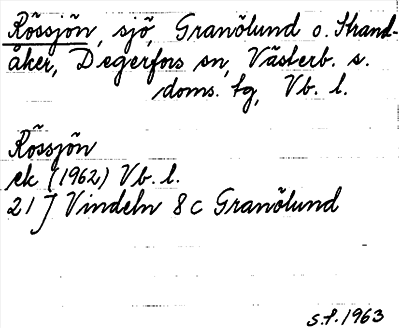 Rössjön, sjö, Granölund o. Strand-
åker, Degerfors sn, Västerb. s.
doms. tg, Vb. l.
Rössjön
ek (1962) Vb. l.
21 J Vindeln 8c Granölund
s.f. 1963